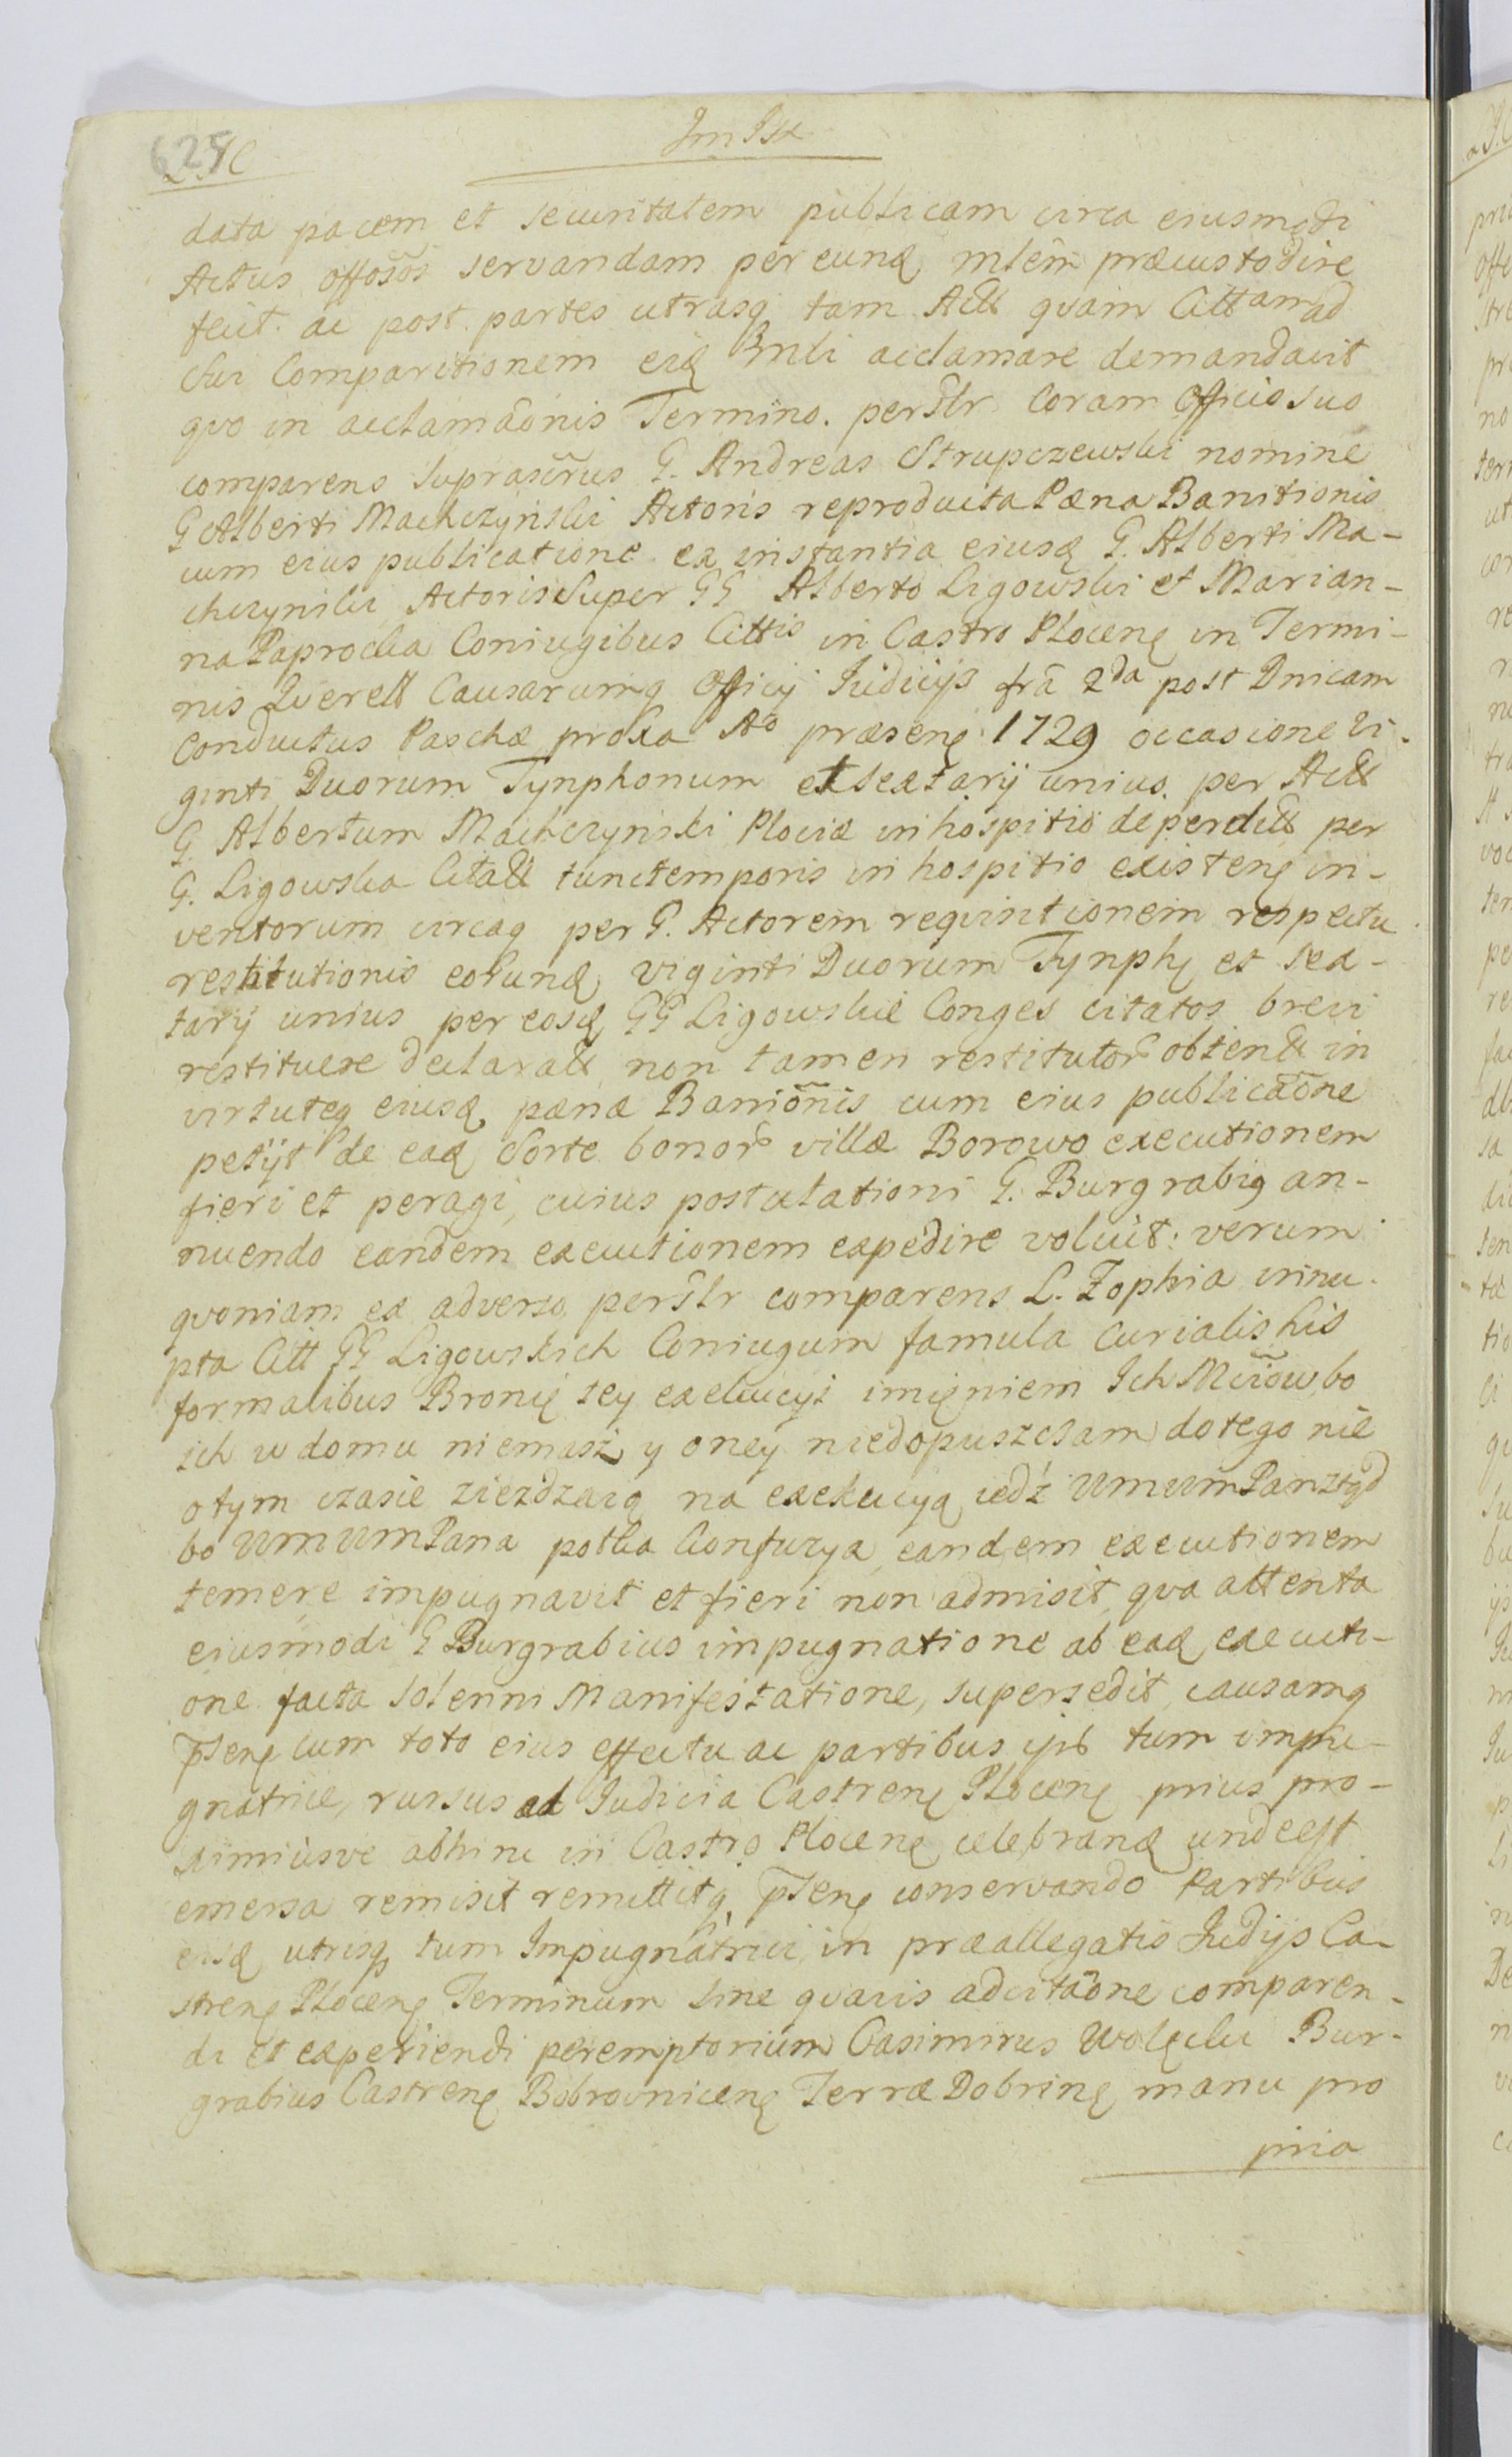 625
data pacem et securitatem publicam circa eiusmodi
Actus offosos servandam per eund mlem præcustodire
fecit. ac post partes utrasq tam Act quam Citt am ad
sui Comparitionem eid Mnli acclamare demandavit
quo in acclamaonis Termino. perslr Coram Officio suo
comparens suprascrus G. Andreas Strupczewski nomine
G Alberti Machczynski Actoris reproducta Pæna Banitionis
cum eius publicatione ex instantia eiusd G. Alberti Ma-
chczynski Actoris Super GG Alberto Ligowski et Marian-
na Paprocka Coniugibus Cittis in Castro Plocens in Termi-
nis Querell Causarumq Officij Iudicijs fra 2da post Dnicam
Conductus Paschæ proxa Ao præsens 1729 occasione Vi-
ginti Duorum Tynphonum et sextarij unius per Act
G. Albertum Machczynski Plociæ in hospitio deperdit per
G. Ligowska Citatt tunctemporis in hospitio existens in-
ventorum circaq per G. Actorem requisitionem respectu
restitutionis eorund viginti Duorum Tynph et sex-
tarij unius per eosd GG Ligowskie Conges citatos brevi
restituere declarat non tamen restitutor obtent in
virtuteq eiusd pænæ Banionis cum eius publicaone
petijt de ead Sorte bonor villæ Borowo executionem
fieri et peragi, cuius postulationi G. Burgrabig an-
nuendo eandem executionem expedire voluit: verum
quoniam ex adverso perslr comparens L. Zophia innu-
pta Citt GG Ligowskich Coniugum famula Curialis his
formalibus Bronię tey exekucyi imięniem Ich Mciow, bo
ich w domu niemasz y oney niedopuszczam do tego nie
o tym czasie ziezdzaią na exekucyą iedź WmWmPan ztąd
bo WmWmPana potka Konfuzya eandem executionem
temere impugnavit et fieri non admisit, qva attenta
eiusmodi G Burgrabius impugnatione ab ead executi-
one facta solenni Manifestatione, supersedit causamq
psens cum toto eius effectu ac partibus ijsd tum impu-
gnatrice, rursus ad Iudicia Castrens Plocens prius pro-
ximiusve abhinc in Castro Plocens celebrand unde est
emersa remisit remittitq psens conservando Partibus
eisd utrisq tum Impugnatrici in præallegatis Iudijs Ca-
strens Plocens Terminum sine quavis adcitaone comparen-
di et experiendi peremptorium Casimirus Wolęcki Bur-
grabius Castrens Bobrovnicens Terræ Dobrins manu pro
pria